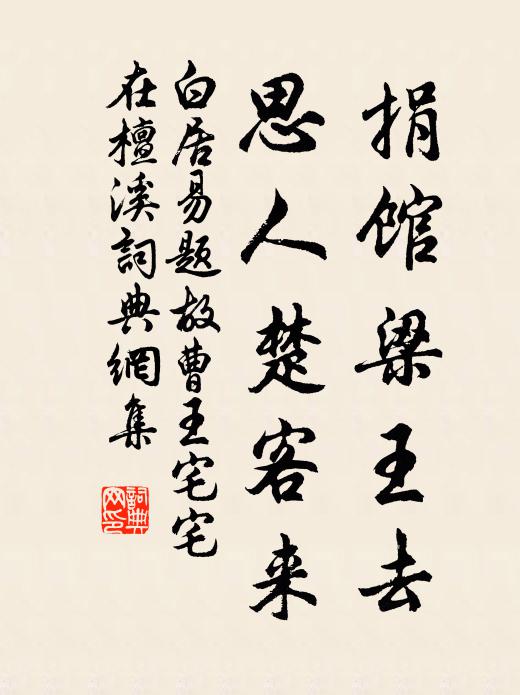 捐馆梁王去
思人楚客来
白居易题故曹王宅宅
在檀溪詞典網集
詞典網印